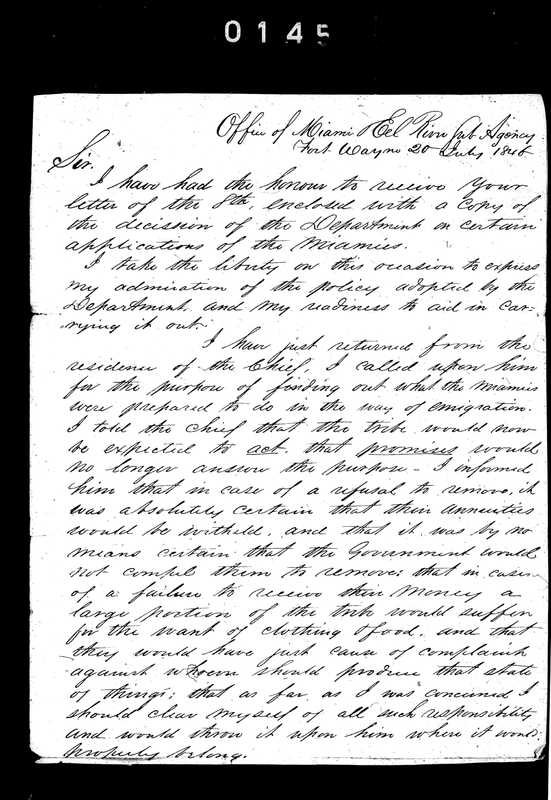 0145
Office of Miami & Eel River Sub Agency
Fort Wayne 20 July 1846
Sir.
I have had the honour to receive your
letter of the 8th, enclosed with a copy of
the decission of the Department on certain
applications of the Miamies.
I take the liberty on this occasion to express
my admiration of the policy adopted by the
Department, and my readiness to aid in car-
rying it out.
I have just returned from the
residence of the Chief, I called upon him
for the purpose of finding out what the Miamies
were prepared to do in the way of emigration.
I told the chief that the tribe would now
be expected to act, that promises would
no longer answer the purpose - I informed
him that in case of a refusal to remove, it
was absolutely certain that their annuities
would be witheld, and that it was by no
means certain that the Government would
not compel them to remove; that in case
of a failure to receive their money a
large portion of the tribe would suffer
for the want of clothing & food, and that
they would have just cause of complaint
against whoever should produce that state
of things; that as far as I was concerned I
should clear myself of all such responsibility
and would throw it upon him where it would
properly belong.